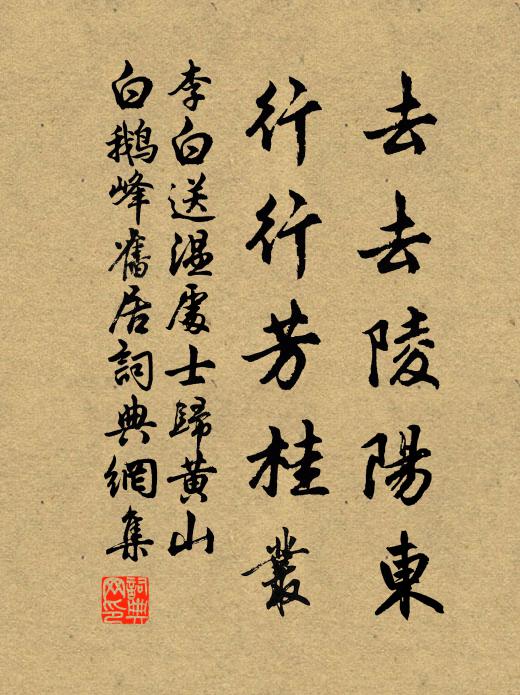 去去陵陽東
行行芳桂叢
李白送溫處士歸黃山
白鵝峰舊居詞典網集
詞典
网印